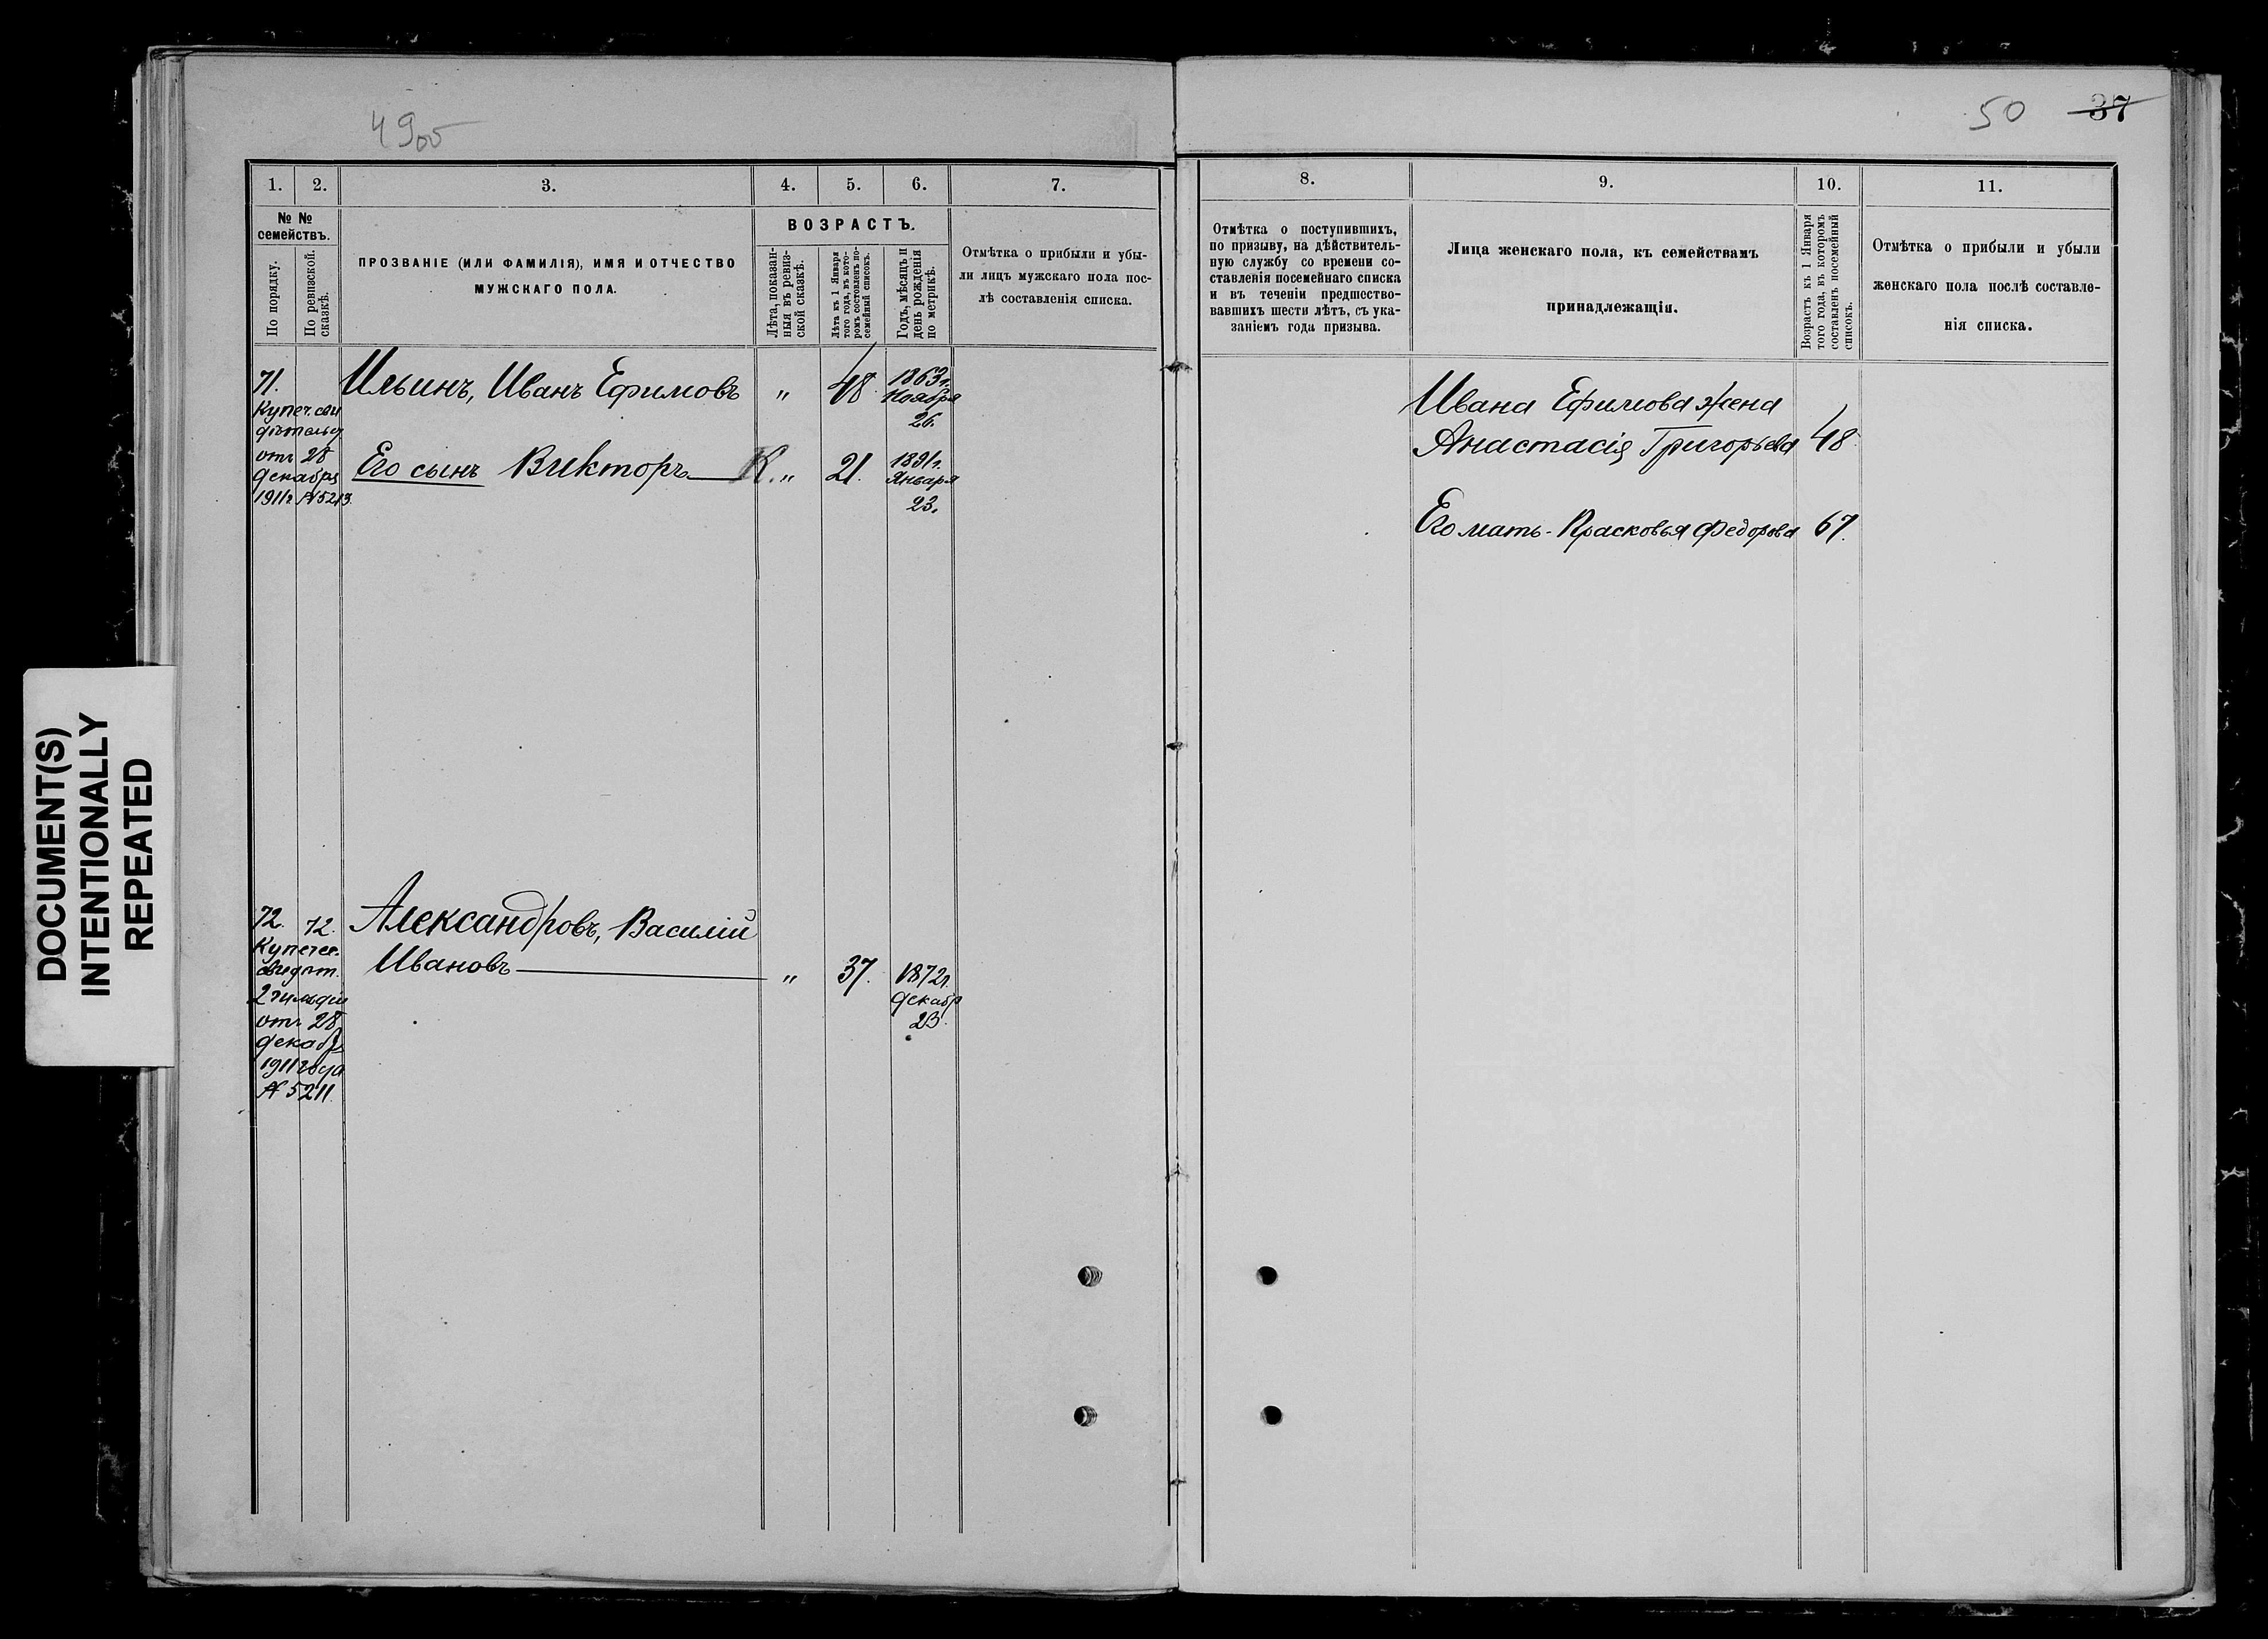 49об
50 37
DOCUMENT(S)
INTENTIONALLY
REPEATED
1. 2. 3. 4. 5. 6. 7.
№ №
семействъ.
По порядку.
По ревизской.
сказкѣ.
ПРОЗВАНІЕ (ИЛИ ФАМИЛІЯ), ИМЯ И ОТЧЕСТВО
МУЖСКАГО ПОЛА.
ВОЗРАСТЪ.
Лѣта, показан-
ныя въ ревиз-
ской сказкѣ.
Лѣта къ 1 Января
того года, въ кото-
ромъ составленъ по-
семейный списокъ.
Годъ, мѣсяцъ и
день рожденія
по метрикѣ.
Отмѣтка о прибыли и убы-
ли лицъ мужскаго пола пос-
лѣ составленія списка.
71.
Купеч. сви
дѣтельст
отъ 28
Декабря
1911г № 5213.
Ильинъ, Иванъ Ефимовъ " 48.
1863г.
Ноября
26.
Его сынъ Викторъ К. " 21.
1891г.
Января
23.
72. 72.
Купечес.
свидѣт.
2 гильдіи
отъ 28
декабр
1911 года
№ 5211.
Александровъ, Василій
Ивановъ " 37.
1872г.
Декабр
23.
8. 9. 10. 11.
Отмѣтка о поступившихъ,
по призыву, на дѣйствитель-
ную службу со времени со-
ставленія посемейнаго списка
и въ теченіи предшество-
вавшихъ шести лѣтъ, съ ука-
заніемъ года призыва.
Лица женскаго пола, къ семействамъ
принадлежащія.
Возрастъ къ 1 Января
того года, въ которомъ
составленъ посемейный
списокъ.
Отмѣтка о прибыли и убыли
женскаго пола послѣ составле-
нія списка.
Ивана Ефимова жена
Анастасія Григорьева 48.
Его мать - Прасковья Федорова 67.